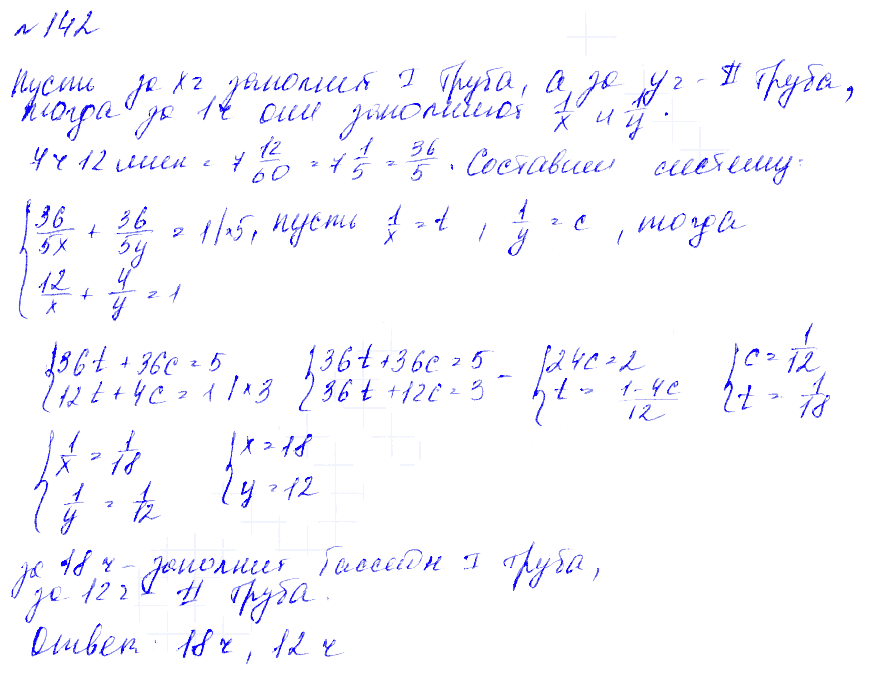 №142
Пусть за x ч заполнит I труба, а за y ч - II труба,
тогда за 1 ч они заполняют 1/x и 1/y.
7 ч 12 мин = 7 12/60 = 7 1/5 = 36/5. Составим систему:
{ 36/5x + 36/5y = 1 |·5, пусть 1/x = t, 1/y = c, тогда
12/x + 4/y = 1
{ 36t + 36c = 5, 12t + 4c = 1 |×3 { 36t + 36c = 5 36t + 12c = 3 - { 24c = 2 t = (1-4c)/12 { c = 1/12 t = 1/18
{ 1/x = 1/18 1/y = 1/12 { x = 18 y = 12
за 18 ч - заполнит бассейн I труба,
за 12 ч - II труба.
Ответ: 18 ч, 12 ч